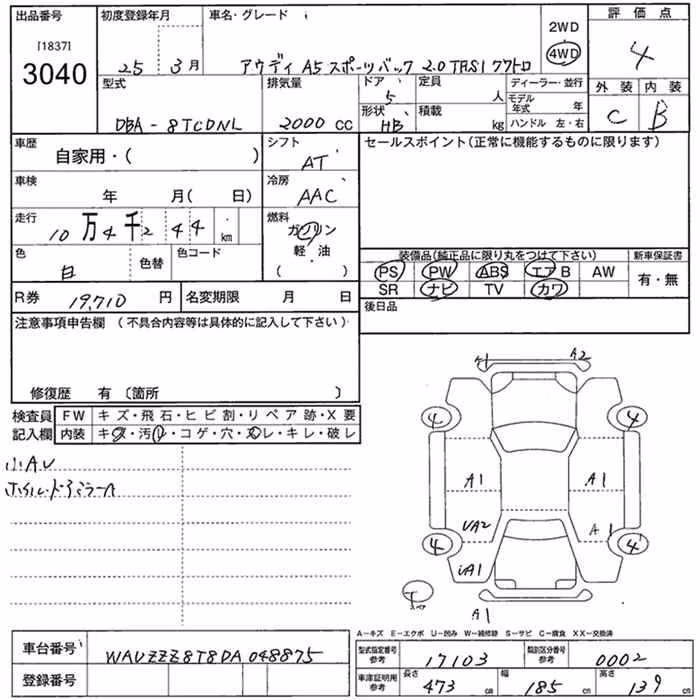 出品番号
[1837]
3040
初度登録年月
25 3月
車名・グレード
アウディ A5 スポーツバック 2.0 TFSI クワトロ
2WD
4WD
評価点
4
外装 内装
C B
型式
DBA-8TCDNL
排気量
2000 CC
ドア
5
形状
HB
定員
人
積載
kg
ディーラー・並行
モデル年式 年
ハンドル 左・右
車歴
自家用・( )
シフト
AT
セールスポイント(正常に機能するものに限ります)
車検
年 月( 日)
冷房
AAC
走行
10万4千244 km
燃料
ガソリン
軽・油
( )
色
白
色替
色コード
装備品(純正品に限り丸をつけて下さい)
新車保証書
PS PW ABS エアB AW
SR ナビ TV カワ
有・無
R券 19,710円
名変期限 月 日
後日品
注意事項申告欄 (不具合内容等は具体的に記入して下さい)
修復歴 有 〔箇所 〕
検査員記入欄
FW キズ・飛石・ヒビ割・リペア跡・X要
内装 キズ・汚レ・コゲ・穴・スレ・キレ・破レ
小AU
A1 A2
4 4
A1 A1
UA2 A1
4 4
UA1
A1
A−キズ E−エクボ U−凹み W−補修跡 S−サビ C−腐食 XX−交換済
車台番号 WAUZZZ8T8DA048875
登録番号
型式指定番号参考 17103
類別区分番号参考 0002
車庫証明用参考
長さ 473 cm
幅 185 cm
高さ 139 cm